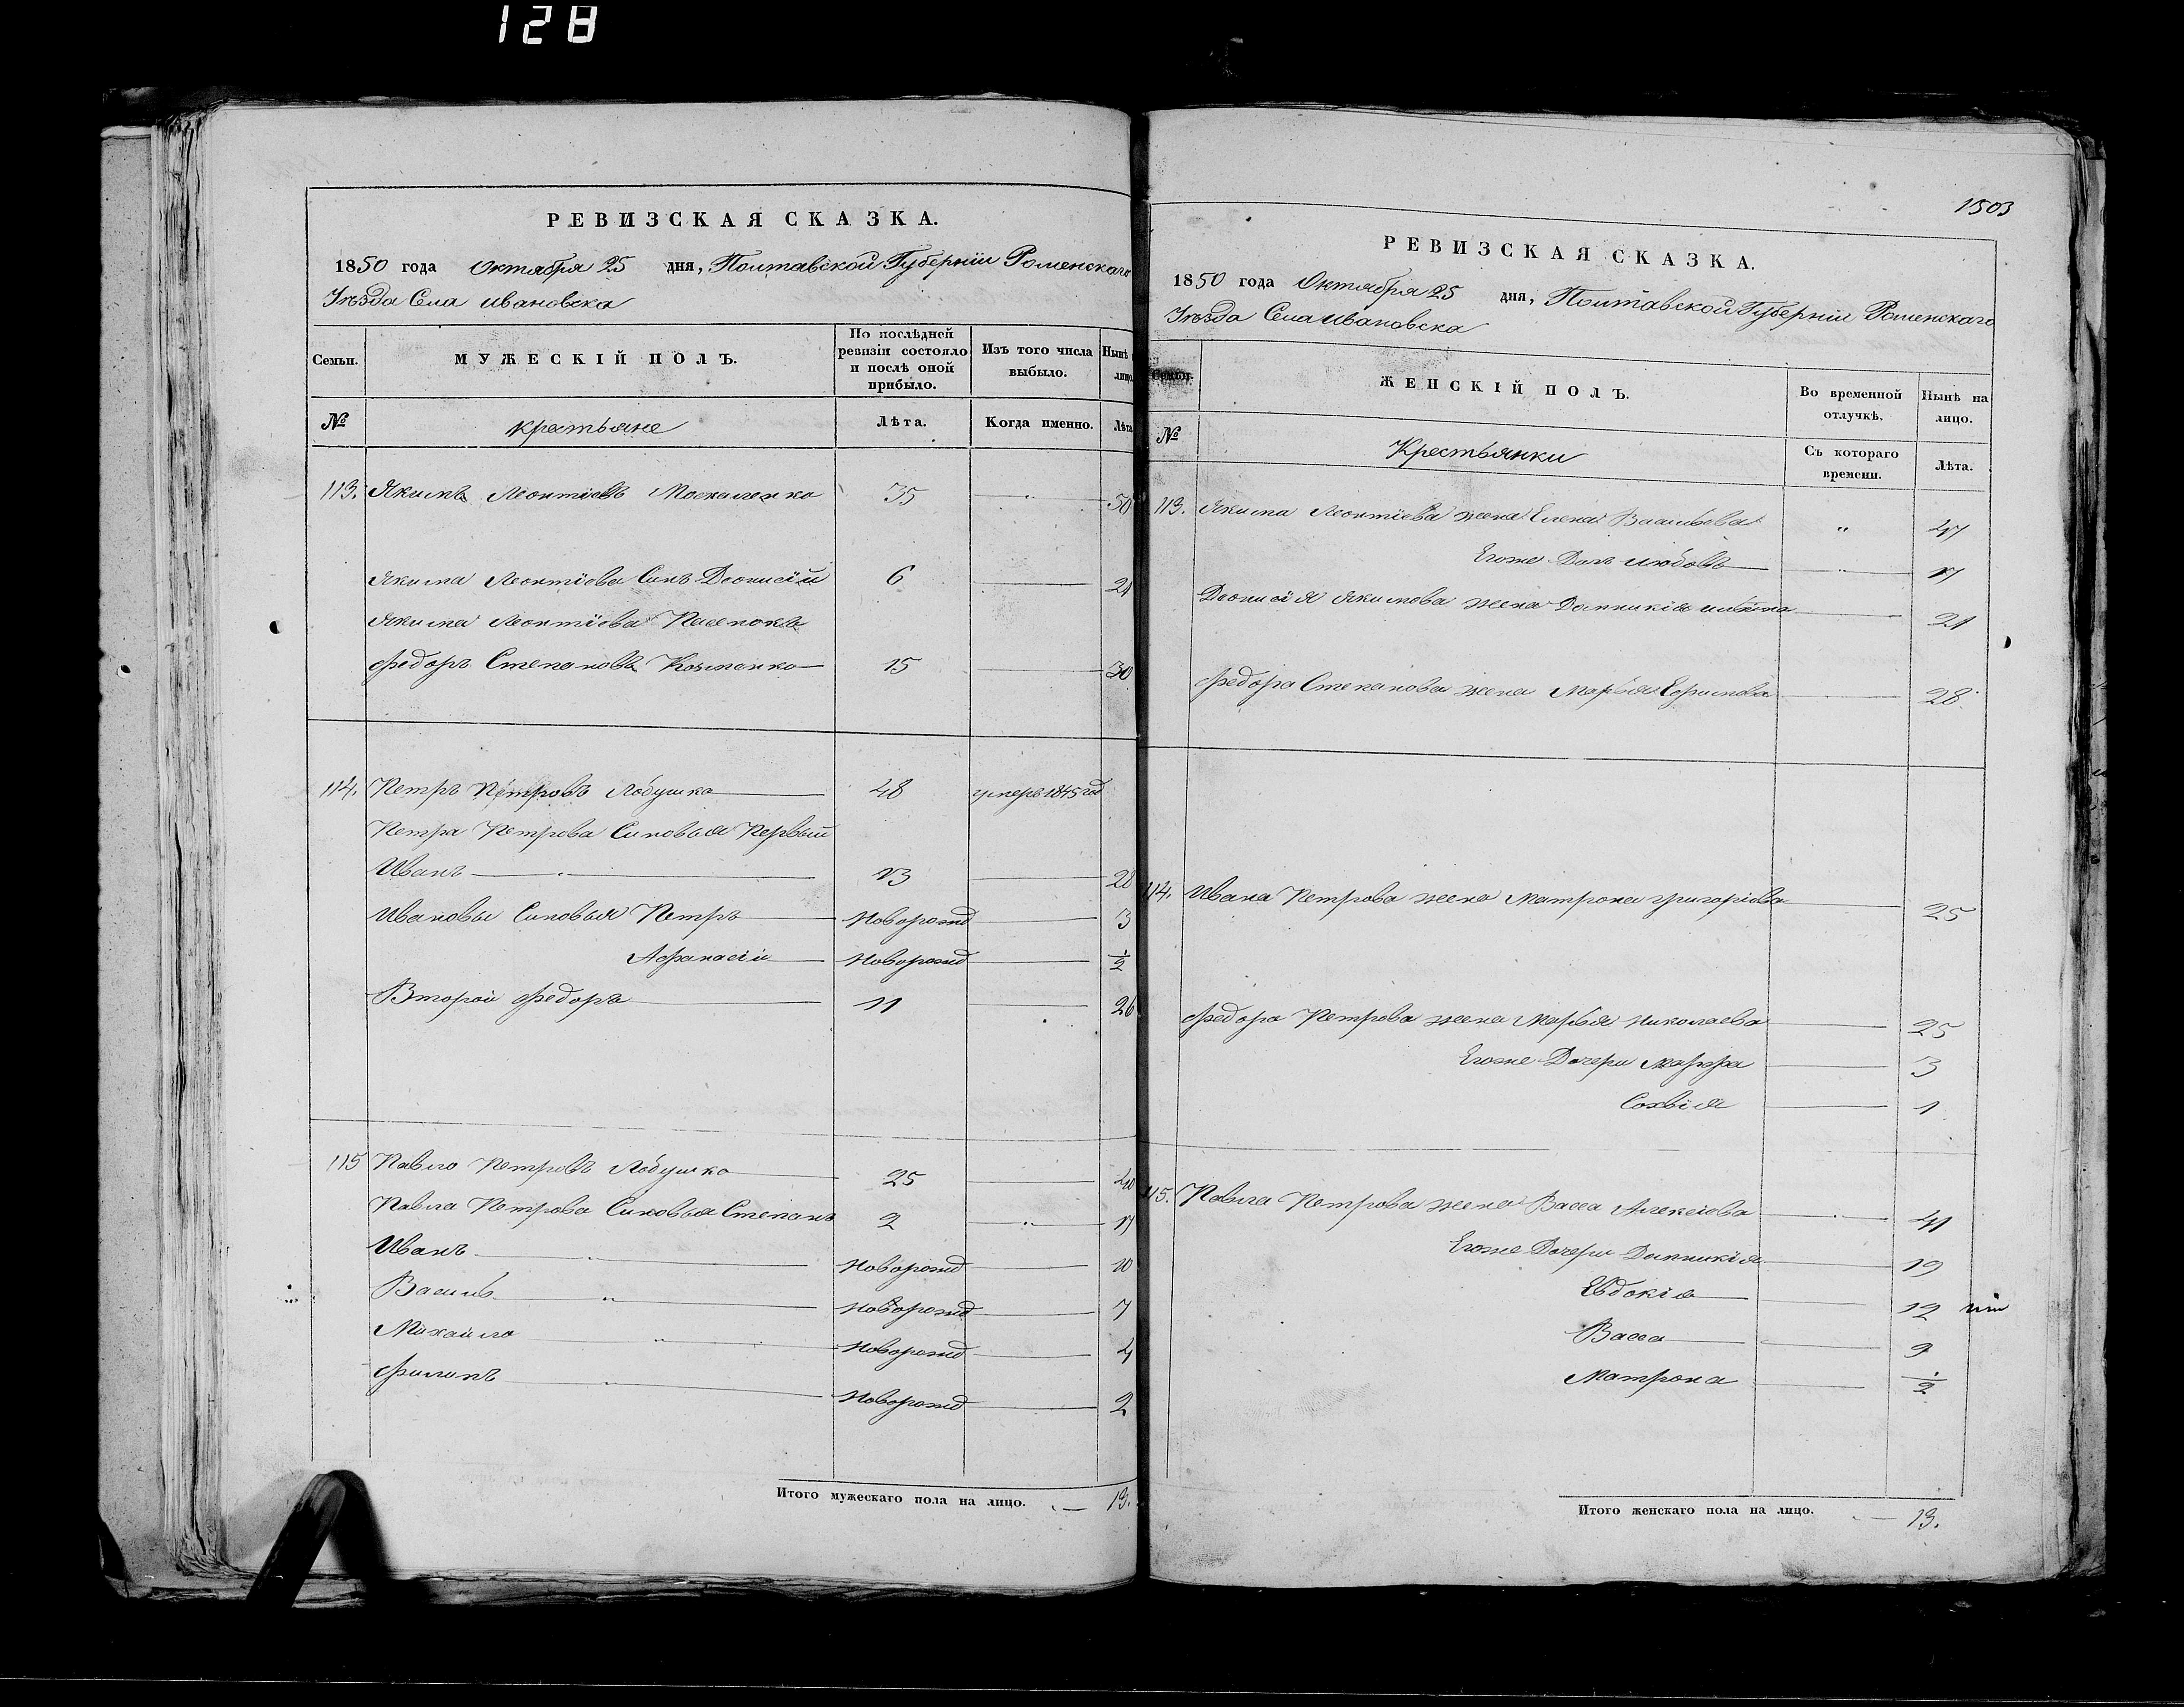 128
РЕВИЗСКАЯ СКАЗКА.
1850 года Октября 25 дня, Полтавской Губерніи Роменскаго
Уѣзда Села Ивановска
Семьи. МУЖЕСКІЙ ПОЛЪ. По послѣдней ревизіи состояло и послѣ оной прибыло. Изъ того числа выбыло. Нынѣ лицо
№ Крестьяне Лѣта. Когда именно. Лѣта
113. Якимъ Леонтіевъ Москаленко 35 50
Якима Леонтіева Синъ Деонисій 6 21
Якима Леонтіева Пасенокъ
Федоръ Степановъ Козменко 15 30
114. Петръ Петровъ Лобушко 48 умеръ 1845 год
Петра Петрова Синовья Первый
Иванъ 13 28
Ивановы Синовья Петръ Новорожд 3
Афанасій Новорожд 1/2
Второй Федоръ 11 26
115 Павло Петровъ Лобушко 25 40
Павла Петрова Синовья Степанъ 2 17
Иванъ Новорожд 10
Василь Новорожд 7
Михайло Новорожд 4
Филипъ Новорожд 2
Итого мужескаго пола на лицо. 13.
1503
РЕВИЗСКАЯ СКАЗКА.
1850 года Октября 25 дня, Полтавской Губерніи Роменскаго
Уѣзда Села Ивановска
Семьи. ЖЕНСКІЙ ПОЛЪ. Во временной отлучкѣ. Нынѣ на лицо.
№ Крестьянки Съ котораго времени. Лѣта.
113. Якима Леонтіева жена Елена Васильева " 47
Егоже Дочь Любовъ 17
Деонисія Якимова жена Домникія 21
Федора Степанова жена Марья Ефимова 28.
114. Ивана Петрова жена Матрона Григоріева 25
Федора Петрова жена Марья Николаева 25
Егоже Дочери Марфа 3
Софвія 1
115. Павла Петрова жена Васса Алексіева 41
Егоже Дочери Домникія 19
Евдокія 12
Васса 9
Матрона 1/2
Итого женскаго пола на лицо. 13.